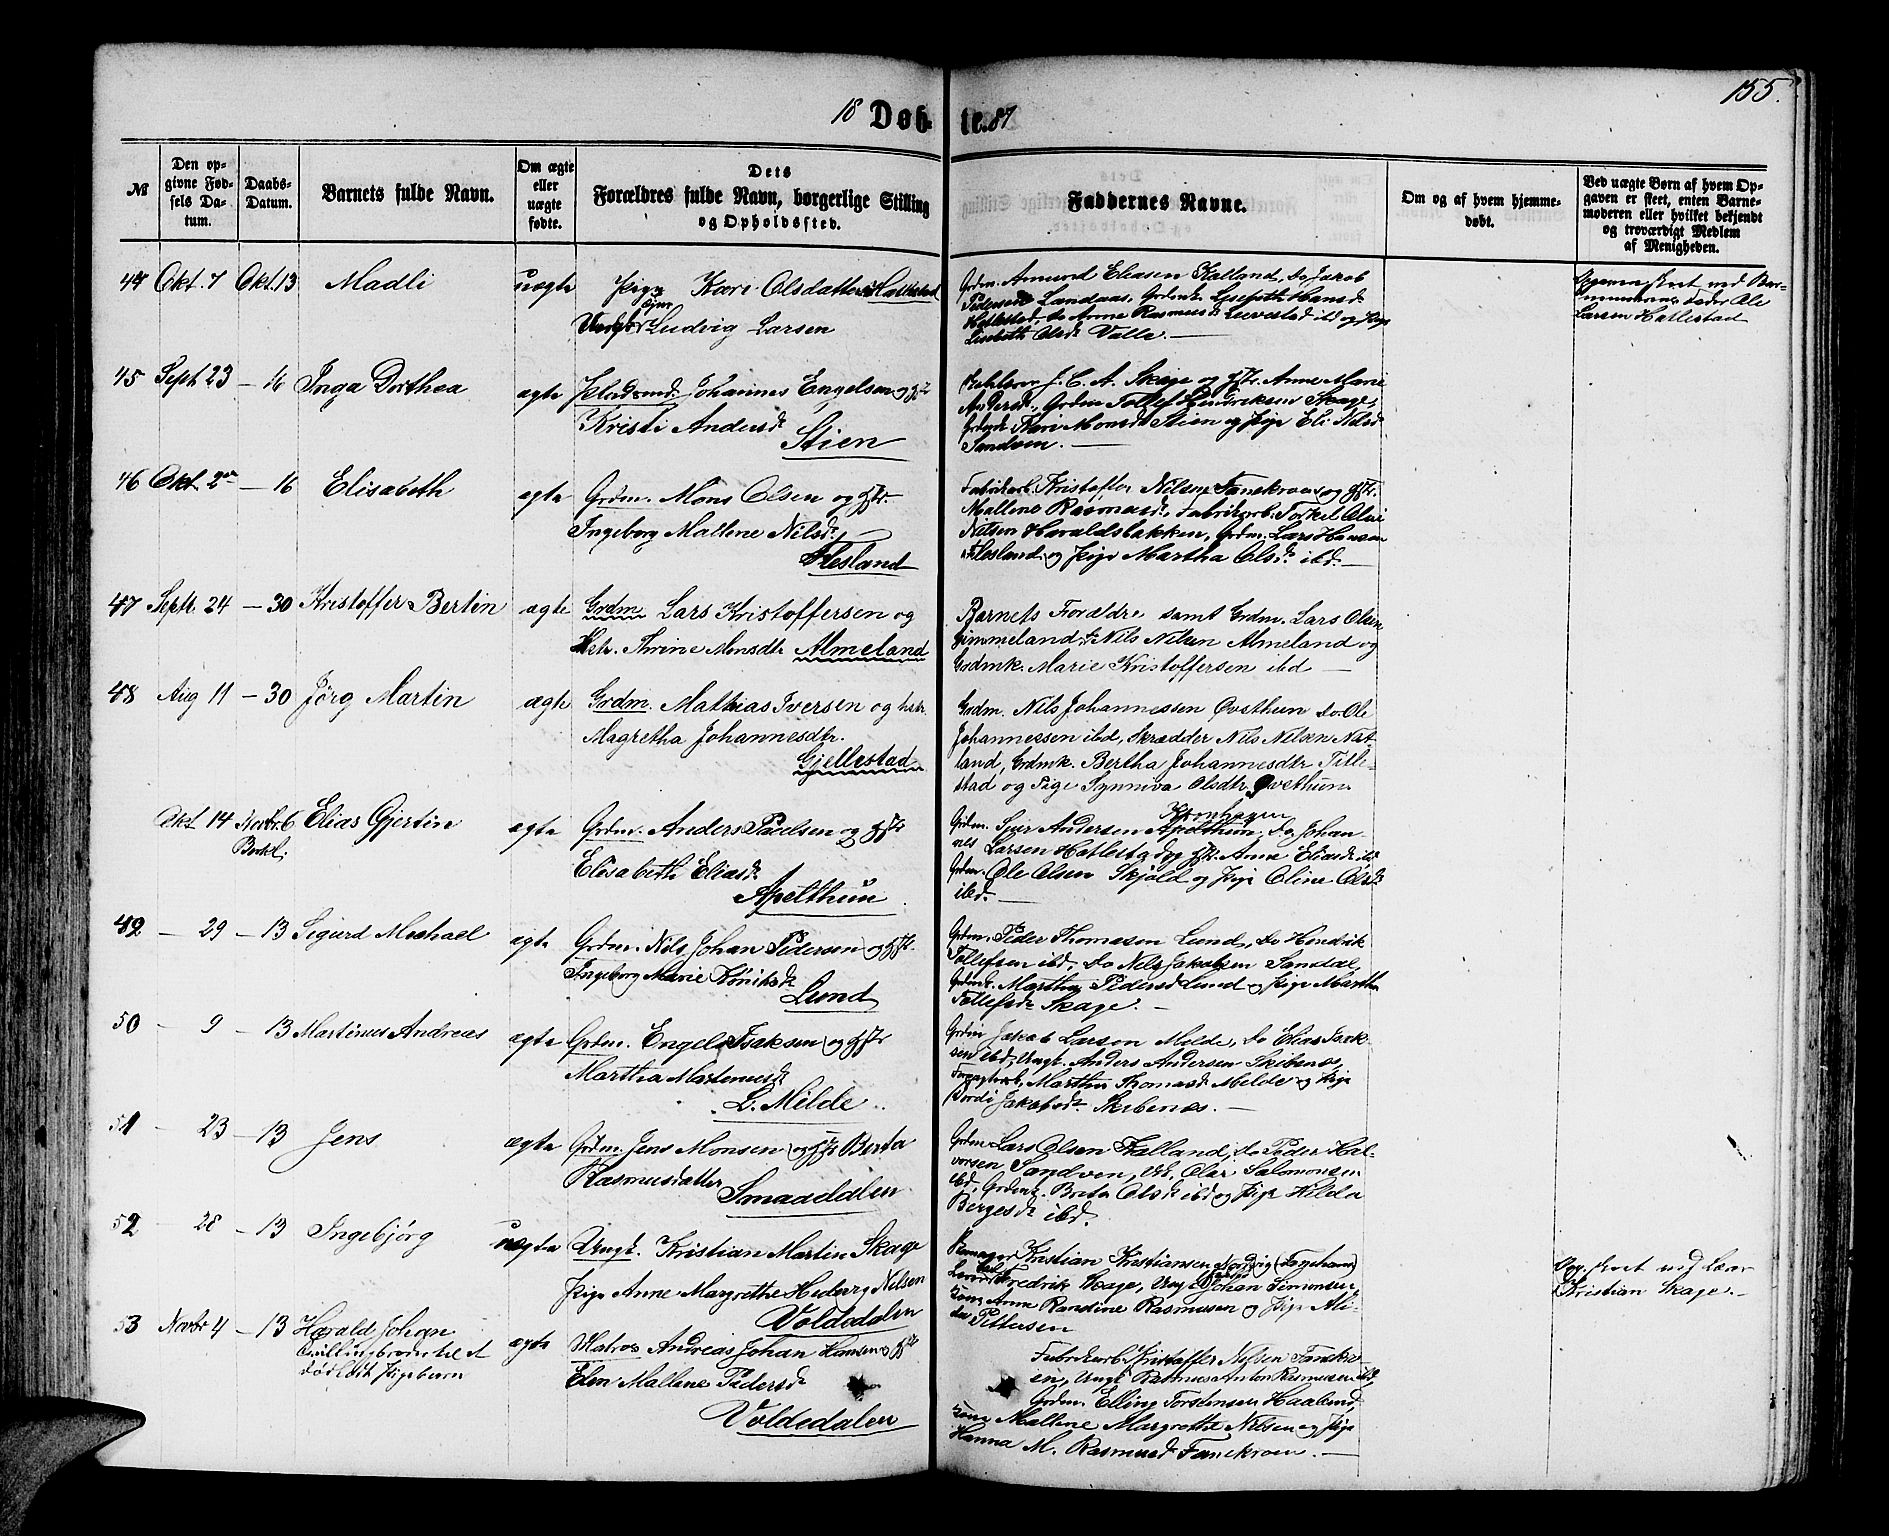 155.
18 Døb- te. 87
№
Den op-
givne Fød-
sels Da-
tum.
Daabs-
Datum.
Barnets fulde Navn.
Om ægte
eller
uægte
fødte.
Dets
Forældres fulde Navn, borgerlige Stilling
og Opholdssted.
Faddernes Navne.
Om og af hvem hjemme-
døbt.
Ved uægte Børn af hvem Op-
gaven er skeet, enten Barne-
moderen eller hvilket bekjendt
og troværdigt Medlem
af Menigheden.
44 Okt. 7 Okt. 13 Madli uægte Pige Kari Olsdatter Hatlestad
Ludvig Larsen
Grdm. Amund Eliasen Kalland, Do Jacob
Pedersen Landaas, Grdmk. Lisebeth Hansd
Hatlestad, do Anne Rasmusd Lievestad ibd og Pige
Lisebeth Olsd. Valle. —
Larsen Hatlestad
45 Sept 23 — 16 Inga Dorthea ægte Pladsmd. Johannes Engelsen og Hstr
Kristi Andersd
Stien
J. C. A. Skage og Hstr. Anne Marie
Andersd., Grdm Tollef Hendriksen Skage,
Grdmk Kari Monsd Stien og Pige Eli Nilsd
Sandven. —
46 Okt. 2den — 16 Elisabeth ægte Grdm. Mons Olsen og Hstr.
Ingeborg Mallene Nilsd.
Flesland
Fabrikarb. Kristoffer Nilsen Fanekroen og Hstr.
Mallene Rasmusd., Fabrikarb. Torkel Olai
Nilsen Haraldsbakken, Grdm. Lars Hansen
Flesland og Pige Martha Olsd. ibd. —
47 Septr. 24 — 30 Kristoffer Bertin ægte Grdm Lars Kristoffersen og
Hstr. Thrine Monsdtr Almeland
Barnets Forældre samt Grdm. Lars Olsen
Gimmeland, do Nils Nilsen Almeland og
Grdmk. Marie Kristoffersen ibd —
48 Aug 11 — 30 Jørg Martin ægte Grdm. Mathias Iversen og hstr.
Magretha Johannesdtr.
Gjellestad
Grdm. Nils Johannessen Øvsthun do. Ole
Johannessen ibd, Skrædder Nils Nilsen Nat-
land, Grdmk. Bertha Johannesdtr Title-
stad og Pige Synniva Olsdtr. Øvsthun.
Okt 14 Novbr. 6 Elias Gjertin ægte Grdm. Anders Poulsen og Hstr
Elisabeth Eliasd
Apelthun
Grdm. Sjur Andersen Apelthun, Do Johan-
nes Larsen Hatlestad og Hstr. Anne Eliasd ibd
Grdm. Ole Olsen Skjold og Pige Oline Olsd
ibd. —
49 — 29 — 13 Sigurd Michael ægte Grdm. Nils Johan Pedersen og Hstr.
Ingeborg Marie
Lund
Grdm. Peder Thomasen Lund, Do Hendrik
Tollefsen ibd, Do Nils Jakobsen Sandal,
Grdmk. Martha Pedersd Lund og Pige Martha
Tollefsd Skage. —
50 — 9 — 13 Martinus Andreas ægte Grdm. Engel Isaksen og Hstr
Martha Martinusd
L. Milde
Grdm Jakob Larson Milde, Do Elias Isak-
sen ibd, Ungk. Anders Andersen Skibenes,
Martha Thomasd Milde og Pige
Jakobsd. Skibenes. —
51 — 23 — 13 Jens ægte Grdm. Jens Monsen og Hstr Berta
Rasmusdatter Smaadalen
Grdm Lars Olsen Kalland, Do Peder Hal-
vorsen Sandven, Olai Salmonsen
ibd, Grdmk. Brita Olsd ibd og Pige Hilda
Bergesd ibd.
52 — 28 — 13 Ingebjørg uægte Ungk. Kristian Martin Skage
Pige Anne Margrethe Nilsen
Voldedalen
Kristian Kristiansen Nordvig (Fanehavn)
Fredrik Skage, Ung. Johan Simonsen
Kone Anne Randine Rasmusen og Pige Ali-
da Pettersen
Kristian Skage. —
53 Novbr 4 — 13 Harald Johan
Tvillingbroder til et
dødfødt Pigebarn
ægte Matros Andreas Johan Hansen og Hstr
Elen Mallene Pedersd
Voldedalen
Fabrikarb. Kristoffer Nilsen Fanekro-
en, Ungk Rasmus Anton Rasmusen ibd,
Grdm. Elling Torstensen Haaland,
Kone Mallene Margrethe Nilsen og Pige
Hanna M. Rasmusd Fanekroen. —